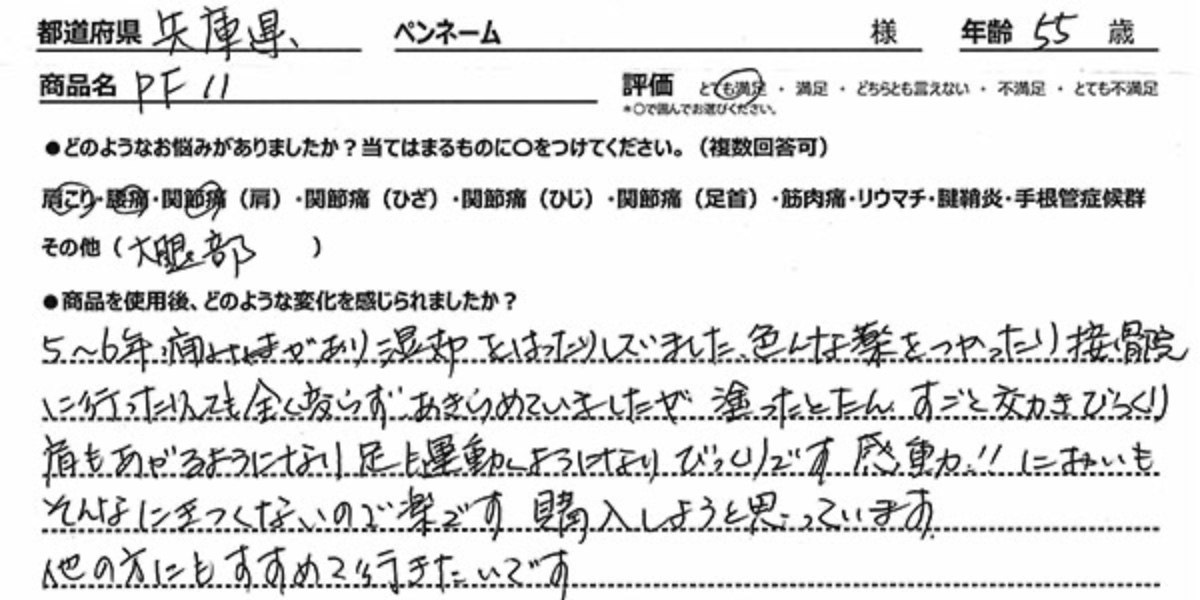 都道府県 兵庫県 ペンネーム 様 年齢 55 歳
商品名 PF11 評価 とても満足 ・ 満足 ・ どちらとも言えない ・ 不満足 ・ とても不満足
*○で囲んでお選びください。
●どのようなお悩みがありましたか?当てはまるものに○をつけてください。(複数回答可)
肩こり・腰痛・関節痛(肩)・関節痛(ひざ)・関節痛(ひじ)・関節痛(足首)・筋肉痛・リウマチ・腱鞘炎・手根管症候群
その他( 大腿部 )
●商品を使用後、どのような変化を感じられましたか?
5〜6年痛みがあり湿布をはったりしていました、色んな薬をつかったり接骨院
に行ったりしても全く変らずあきらめていましたが 塗ったとたん すごと効きびっくり
肩もあがるようになり 足も運動くようになりびっくりです 感動!! においも
そんなにきつくないので楽です 購入しようと思っています
他の方にもすすめて行きたいです